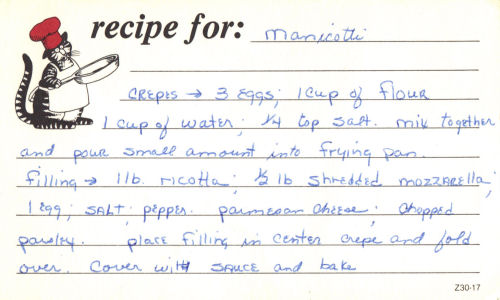 recipe for: Manicotti
CREPES → 3 Eggs; 1 cup of flour
1 cup of water; 1/4 tsp salt. mix together
and pour small amount into frying pan.
Filling → 1 lb. ricotta; 1/2 lb shredded mozzarella;
1 egg; salt; pepper. parmesan cheese; chopped
parsley. place filling in center crepe and fold
over. Cover with sauce and bake
Z30-17